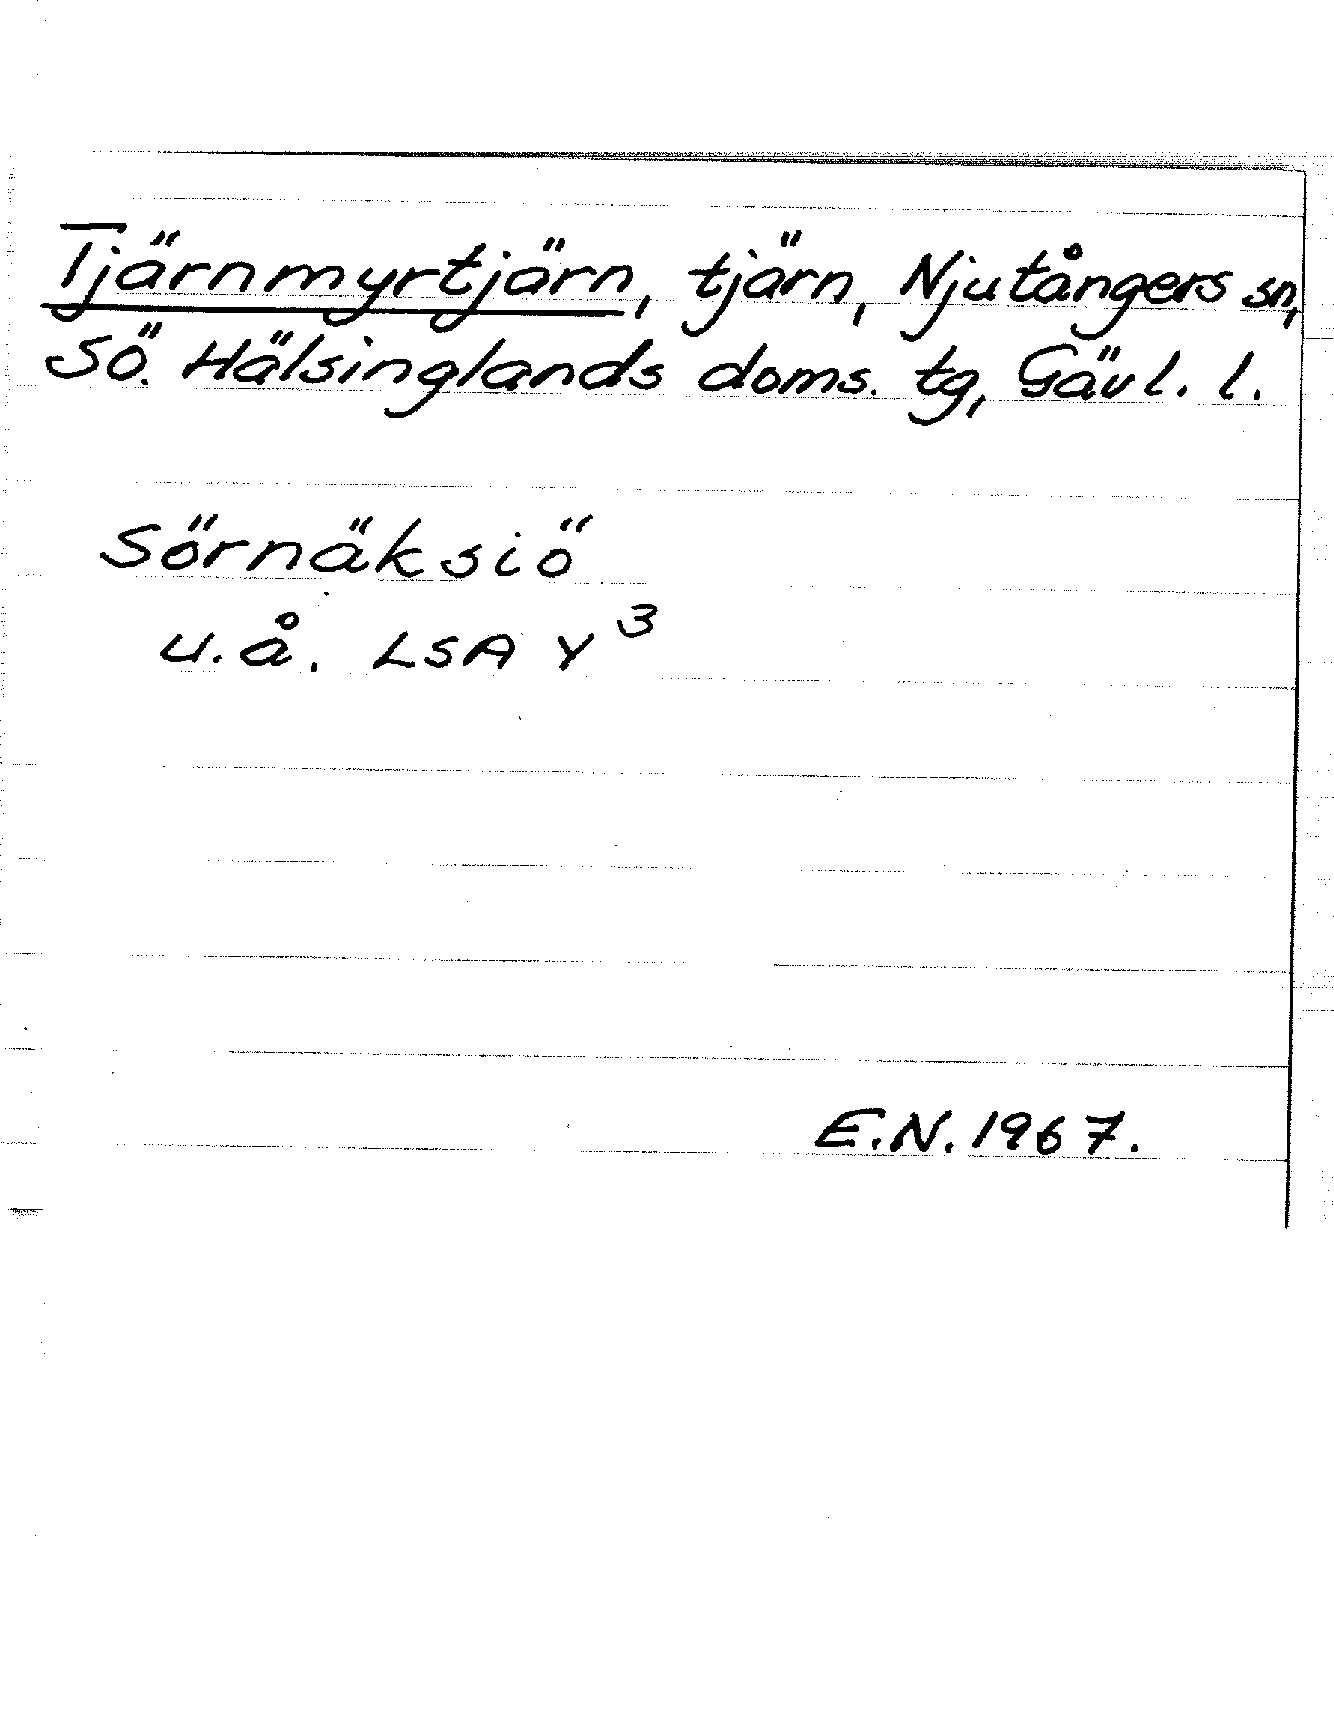 Tjärnmyrtjärn, tjärn, Njutångers sn,
Sö. Hälsinglands doms. tg, Gävl. l.
Sörnäksiö
u.å. LSA Y 3
E.N. 1967.